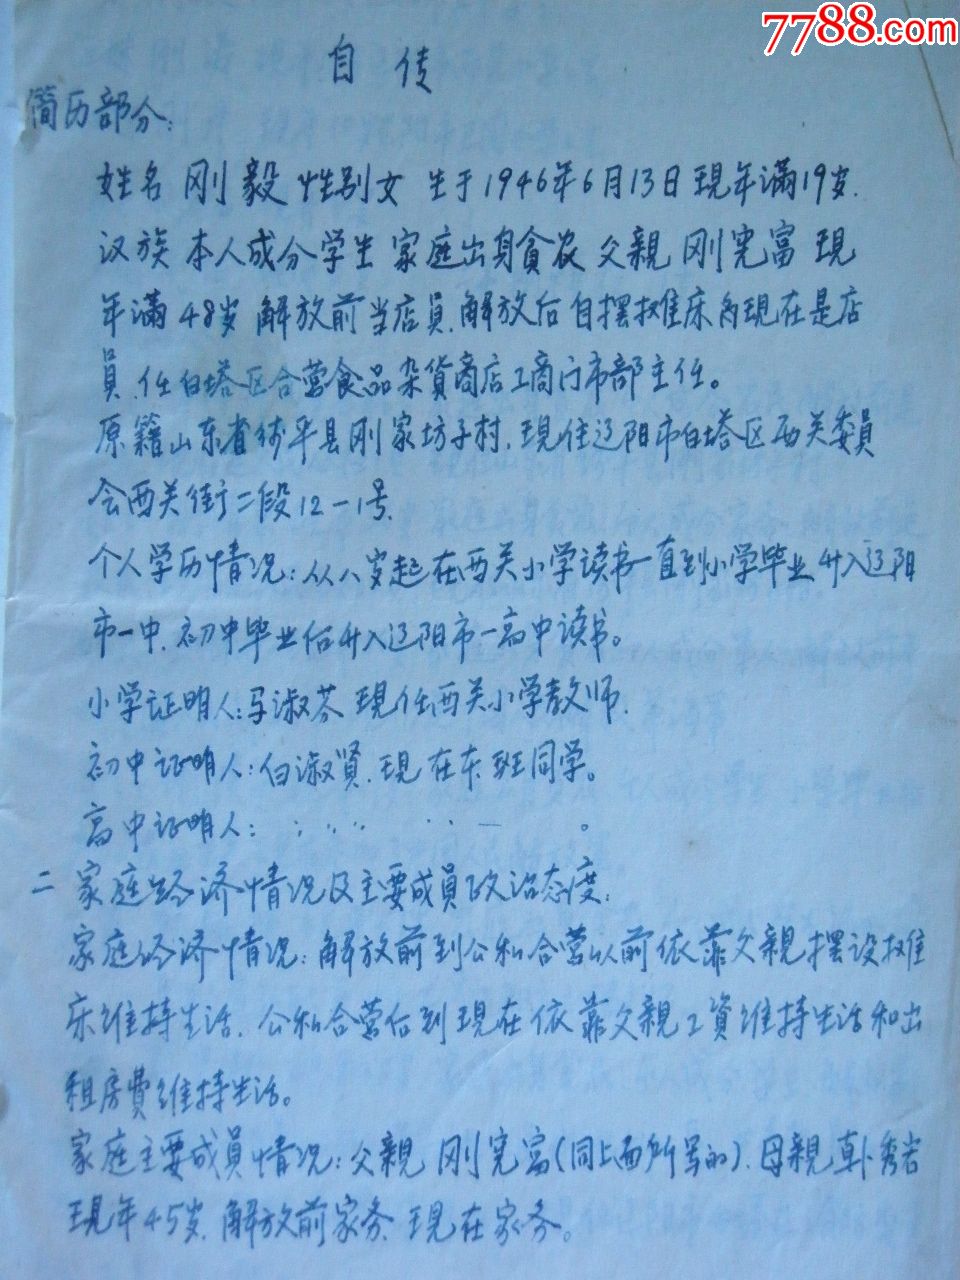 7788.com
自传
简历部分:
姓名 刚毅 性别女 生于1946年6月13日 現年滿19岁.
汉族 本人成分学生 家庭出身貧农 父親 刚宪富 現
年滿48岁 解放前当店員.解放后自摆摊床 現在是店
員.任白塔区合营食品杂貨商店工商门市部主任。
原籍山东省 平县刚家坊子村.現住辽阳市白塔区西关委員
会西关街二段12-1号.
个人学历情况:从八岁起在西关小学读书一直到小学毕业升入辽阳
市一中.初中毕业后升入辽阳市一高中读书。
小学证明人:马淑芬 現任西关小学教师.
初中证明人:白淑贤.現在本班同学。
高中证明人:
二 家庭经济情况及主要成員政治态度.
家庭经济情况:解放前到公私合营以前依靠父親摆设摊
床维持生活.公私合营后到現在依靠父親工資维持生活和出
租房費维持生活。
家庭主要成員情况:父親 刚宪富(同上面所写的).母親 秀岩
現年45岁.解放前家务 現在家务。